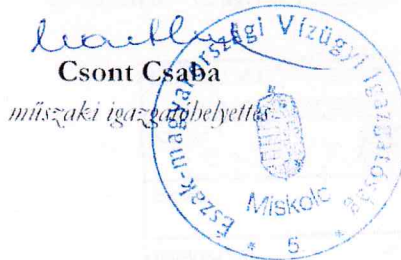 Csont Csaba
műszaki igazgatóhelyettes
Észak-magyarországi Vízügyi Igazgatóság
Miskolc
* 5 *